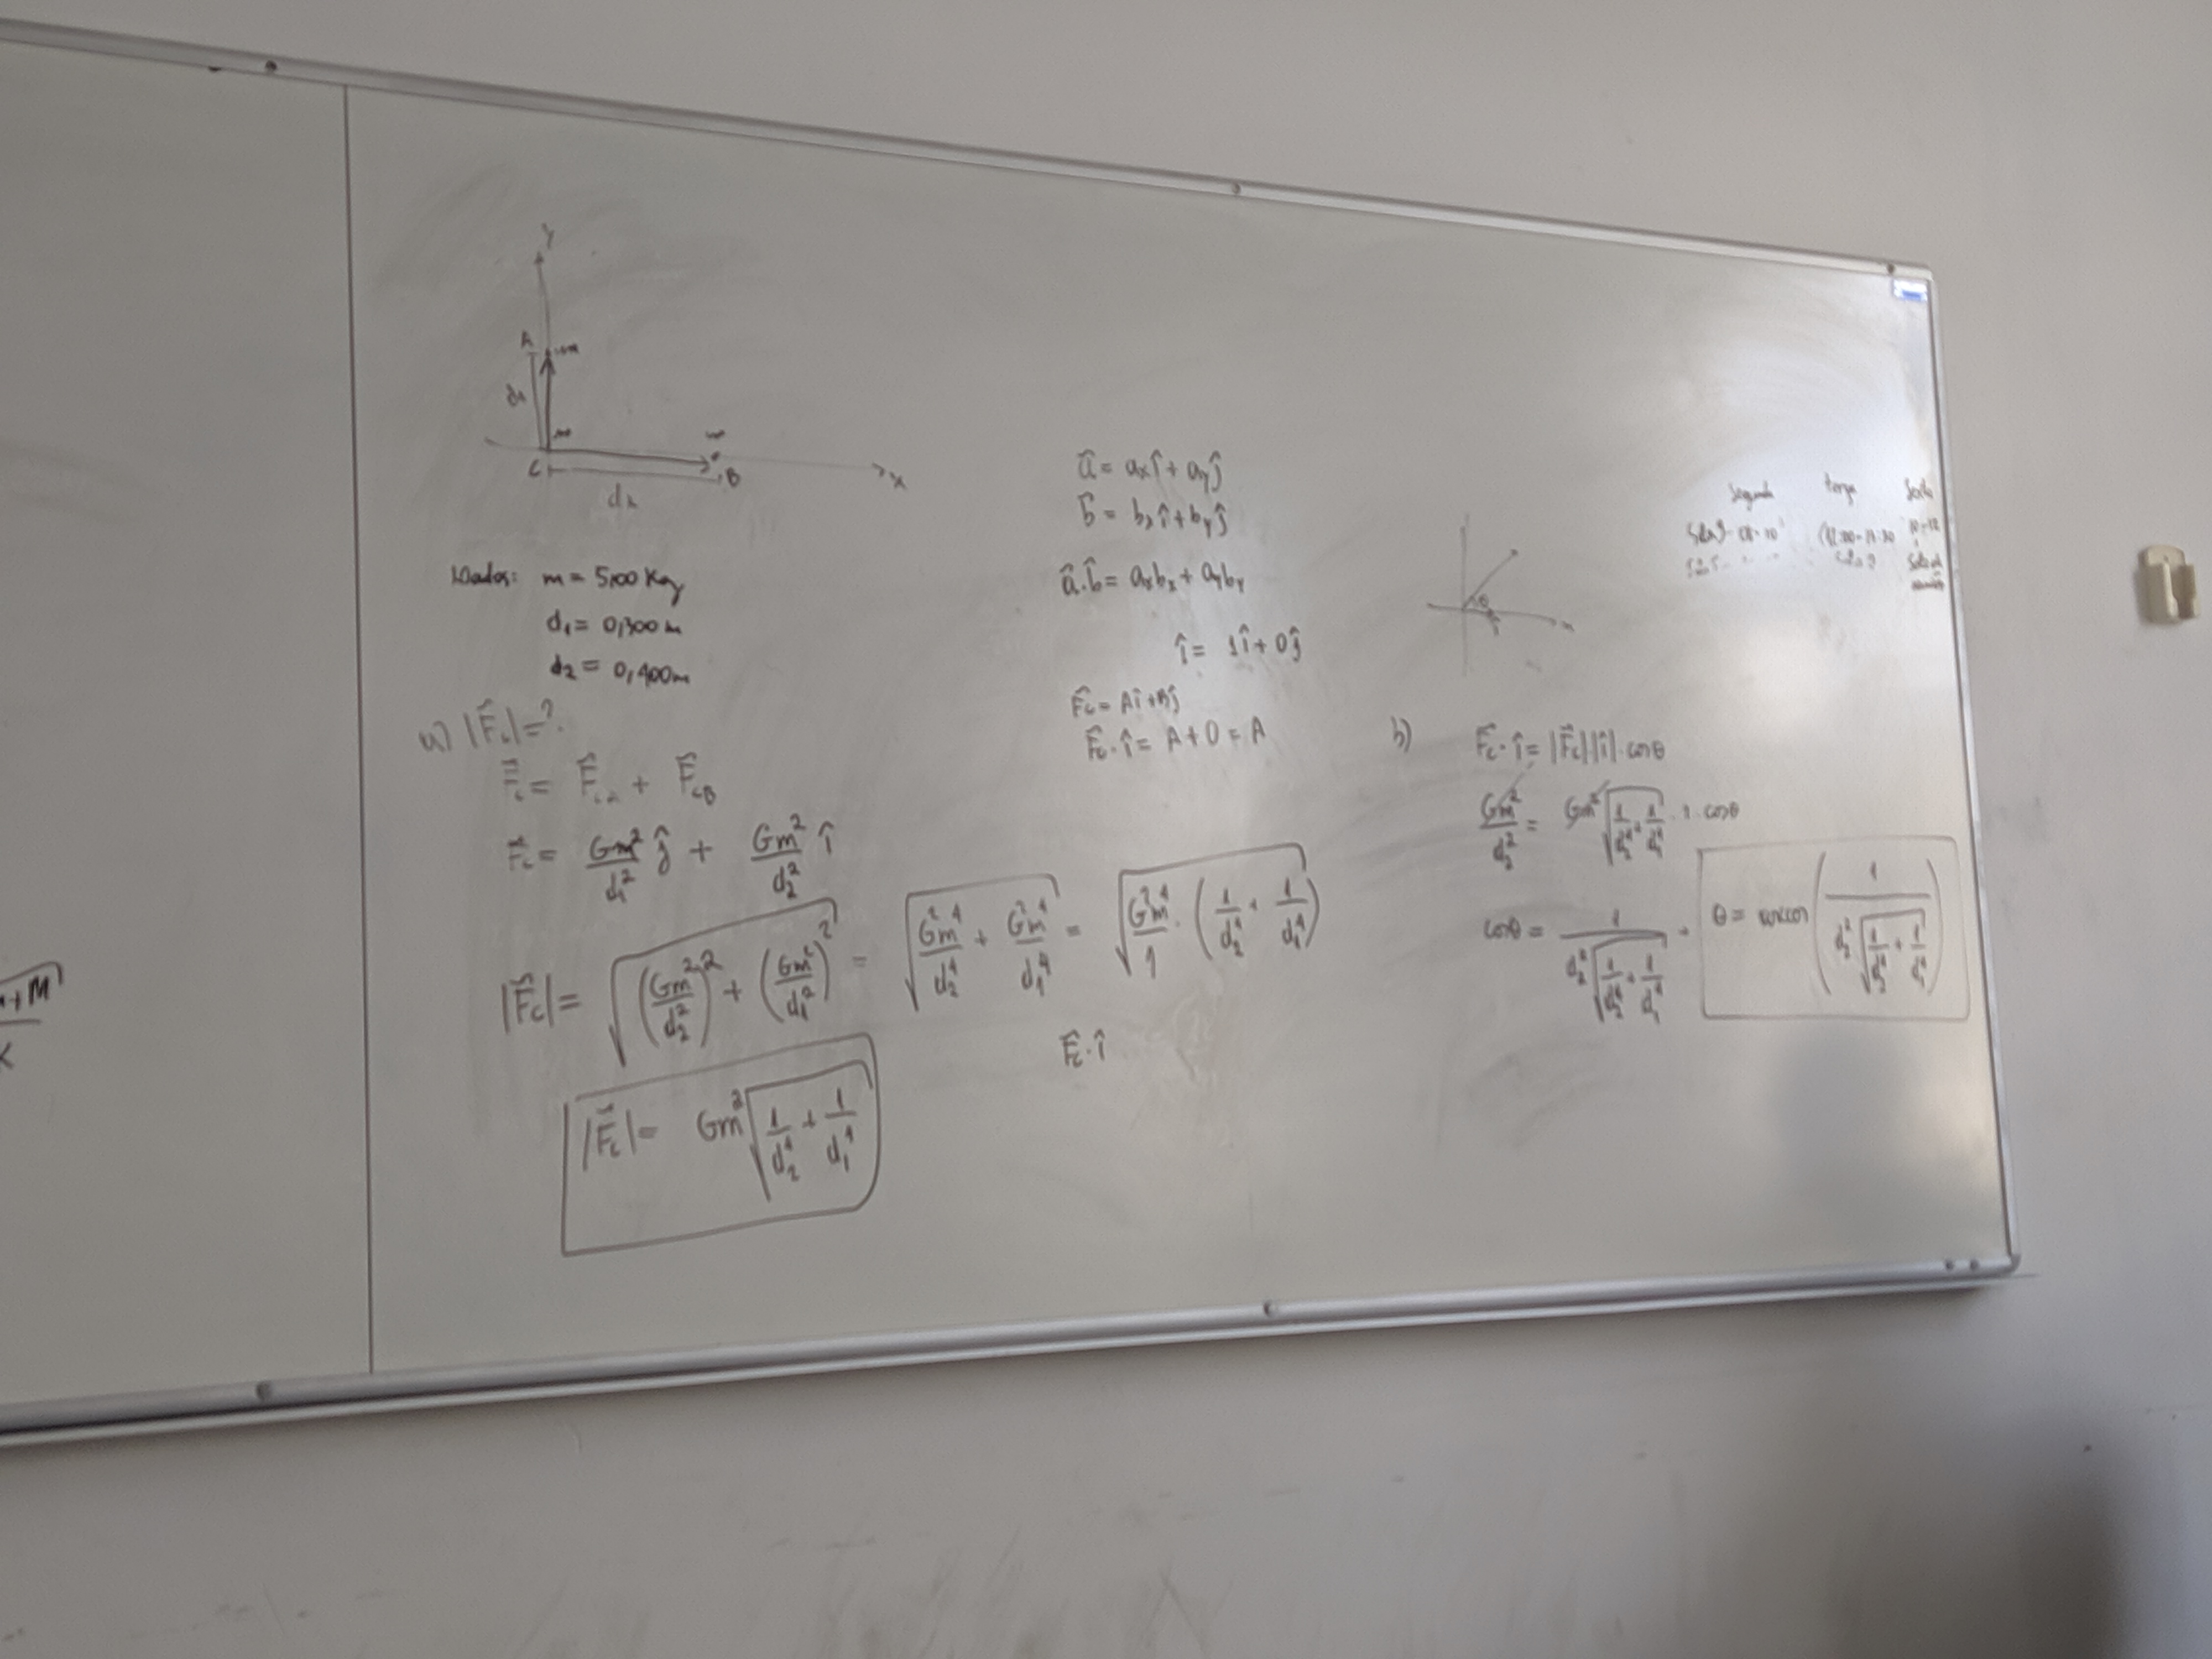 y
A
m
d₁
m
m
C
B
x
d₂
Dados: m = 5,00 Kg
d₁ = 0,300 m
d₂ = 0,400 m
a) |F⃗c| = ?
F⃗c = F⃗cA + F⃗cB
F⃗c = Gm²/d₁² ĵ + Gm²/d₂² î
|F⃗c| = √((Gm²/d₂²)² + (Gm²/d₁²)²) = √(G²m⁴/d₂⁴ + G²m⁴/d₁⁴) = √(G²m⁴/1 · (1/d₂⁴ + 1/d₁⁴))
|F⃗c| = Gm² √(1/d₂⁴ + 1/d₁⁴)
a⃗ = aₓî + aᵧĵ
b⃗ = bₓî + bᵧĵ
a⃗·b⃗ = aₓbₓ + aᵧbᵧ
î = 1î + 0ĵ
F⃗c = Aî + Bĵ
F⃗c·î = A + 0 = A
F⃗c·î
θ
î
x
b) F⃗c·î = |F⃗c||î|·cosθ
Gm²/d₂² = Gm² √(1/d₂⁴ + 1/d₁⁴) · 1 · cosθ
cosθ = 1/(d₂² √(1/d₂⁴ + 1/d₁⁴))
θ = arccos(1/(d₂² √(1/d₂⁴ + 1/d₁⁴)))
Segunda terça Sexta
10-12
+M